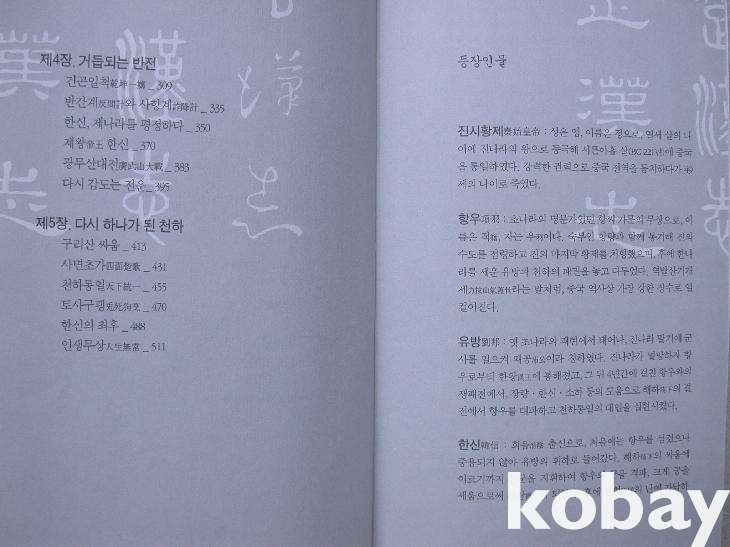 제4장. 거듭되는 반전
건곤일척乾坤一擲 _ 309
반간계反間計와 사항계詐降計 _ 335
한신, 제나라를 평정하다 _ 350
제왕帝王 한신 _ 370
광무산대전廣武山大戰 _ 383
다시 감도는 전운 _ 395
제5장. 다시 하나가 된 천하
구리산 싸움 _ 413
사면초가四面楚歌 _ 431
천하통일天下統一 _ 455
토사구팽兎死狗烹 _ 470
한신의 최후 _ 488
인생무상人生無常 _ 511
등장인물
진시황제秦始皇帝 : 성은 영, 이름은 정으로, 열세 살의 나
이에 진나라의 왕으로 등극해 서른아홉 살(BC 221년)에 중국
을 통일하였다. 강력한 권력으로 중국 전역을 통치하다가 49
세의 나이로 죽었다.
항우項羽 : 초나라의 명문가였던 항씨 가문의 무장으로, 이
름은 적籍, 자는 우羽이다. 숙부인 항량과 함께 봉기해 진의
수도를 점령하고 진의 마지막 황제를 처형했으며, 후에 한나
라를 세운 유방과 천하의 패권을 놓고 다투었다. 역발산기개
세力拔山氣蓋世라는 말처럼, 중국 역사상 가장 강한 장수로 일
컬어진다.
유방劉邦 : 옛 초나라의 패현에서 태어나, 진나라 말기에 군
사를 일으켜 패공沛公이라 칭하였다. 진나라가 멸망하자 항
우로부터 한왕漢王에 봉해졌고, 그 뒤 4년간에 걸친 항우와의
쟁패전에서, 장량 · 한신 · 소하 등의 도움으로 해하垓下의 결
전에서 항우를 대파하고 천하통일의 대업을 실현시켰다.
한신韓信 : 회음淮陰 출신으로, 처음에는 항우를 섬겼으나
중용되지 않아 유방의 휘하로 들어갔다. 해하垓下의 싸움에
이르기까지 군을 지휘하여 항우 을 격파, 크게 공을
세움으로써
kobay